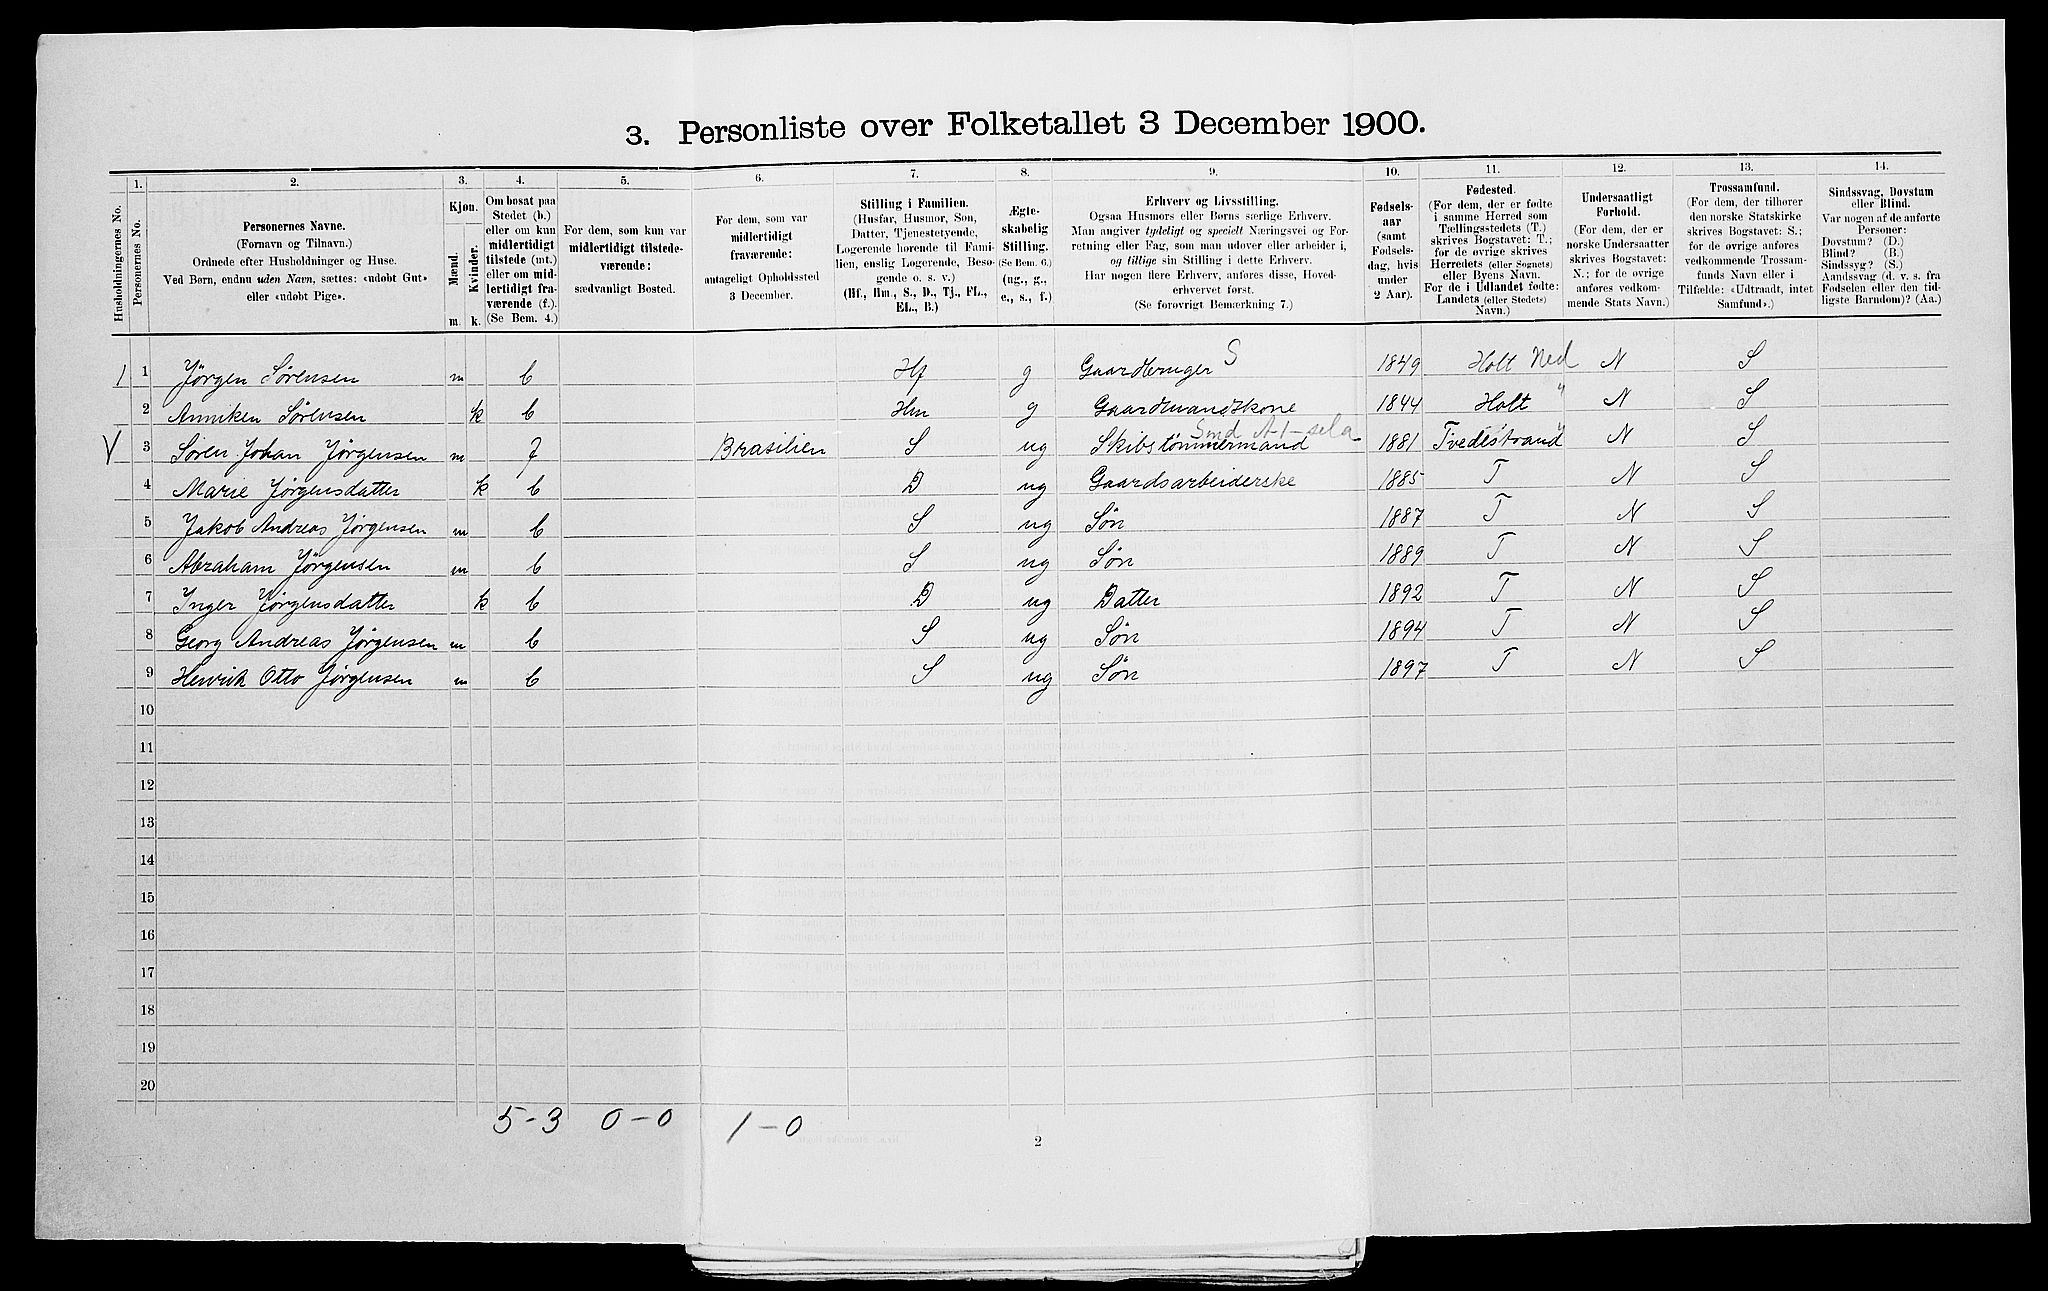 3. Personliste over Folketallet 3 December 1900.
1. 2. 3. 4. 5. 6. 7. 8. 9. 10. 11. 12. 13. 14.
Husholdningernes No.
Personernes No.
Personernes Navne.
(Fornavn og Tilnavn.)
Ordnede efter Husholdninger og Huse.
Ved Børn, endnu uden Navn, sættes: «udøbt Gut»
eller «udøbt Pige».
Kjøn.
Mænd.
Kvinder.
m. k.
Om bosat paa
Stedet (b.)
eller om kun
midlertidigt
tilstede (mt.)
eller om mid-
lertidigt fra-
værende (f.).
(Se Bem. 4.)
For dem, som kun var
midlertidigt tilstede-
værende:
sædvanligt Bosted.
For dem, som var
midlertidigt
fraværende:
antageligt Opholdssted
3 December.
Stilling i Familien.
(Husfar, Husmor, Søn,
Datter, Tjenestetyende,
Logerende hørende til Fami-
lien, enslig Logerende, Besø-
gende o. s. v.)
(Hf., Hm., S., D., Tj., FL.,
EL., B.)
Ægte-
skabelig
Stilling.
(Se Bem. 6.)
(ug., g.,
e., s., f.)
Erhverv og Livsstilling.
Ogsaa Husmors eller Børns særlige Erhverv.
Man angiver tydeligt og specielt Næringsvei og For-
retning eller Fag, som man udøver eller arbeider i,
og tillige sin Stilling i dette Erhverv.
Har nogen flere Erhverv, anføres disse, Hoved-
erhvervet først.
(Se forøvrigt Bemærkning 7.)
Fødsels-
aar
(samt
Fødsels-
dag, hvis
under
2 Aar).
Fødested.
(For dem, der er fødte
i samme Herred som
Tællingsstedets (T.)
skrives Bogstavet: T.;
for de øvrige skrives
Herredets (eller Sognets)
eller Byens Navn.
For de i Udlandet fødte:
Landets (eller Stedets)
Navn.)
Undersaatligt
Forhold.
(For dem, der er
norske Undersaatter
skrives Bogstavet:
N.; for de øvrige
anføres vedkom-
mende Stats Navn.)
Trossamfund.
(For dem, der tilhører
den norske Statskirke
skrives Bogstavet: S.;
for de øvrige anføres
vedkommende Trossam-
funds Navn eller i
Tilfælde: «Udtraadt, intet
Samfund».)
Sindssvag, Døvstum
eller Blind.
Var nogen af de anførte
Personer:
Døvstum? (D.)
Blind? (B.)
Sindssyg? (S.)
Aandssvag (d. v. s. fra
Fødselen eller den tid-
ligste Barndom)? (Aa.)
1 1 Jørgen Sørensen m b Hf g Gaardbruger S 1849 Holt Ned N S
2 Anniken Sørensen k b Hm g Gaardmandskone 1844 Holt " N S
V 3 Søren Johan Jørgensen m f Brasilien S ug Skibstømmermand 1881 Tvedestrand N S
4 Marie Jørgensdatter k b D ug Gaardsarbeiderske 1885 T N S
5 Jakob Andreas Jørgensen m b S ug Søn 1887 T N S
6 Abraham Jørgensen m b S ug Søn 1889 T N S
7 Inger Jørgensdatter k b D ug Datter 1892 T N S
8 Georg Andreas Jørgensen m b S ug Søn 1894 T N S
9 Henrik Otto Jørgensen m b S ug Søn 1897 T N S
10
11
12
13
14
15
16
17
18
19
20
5-3 0-0 1-0
2